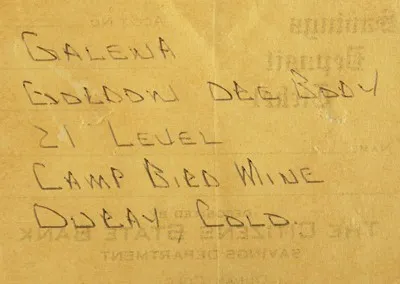 Savings
ACCT NO
GALENA
Deposit
GORDON ORE BODY
Ticket
21 LEVEL
CAMP BIRD MINE
OURAY, COLO.
THE CITIZENS STATE BANK
SAVINGS DEPARTMENT